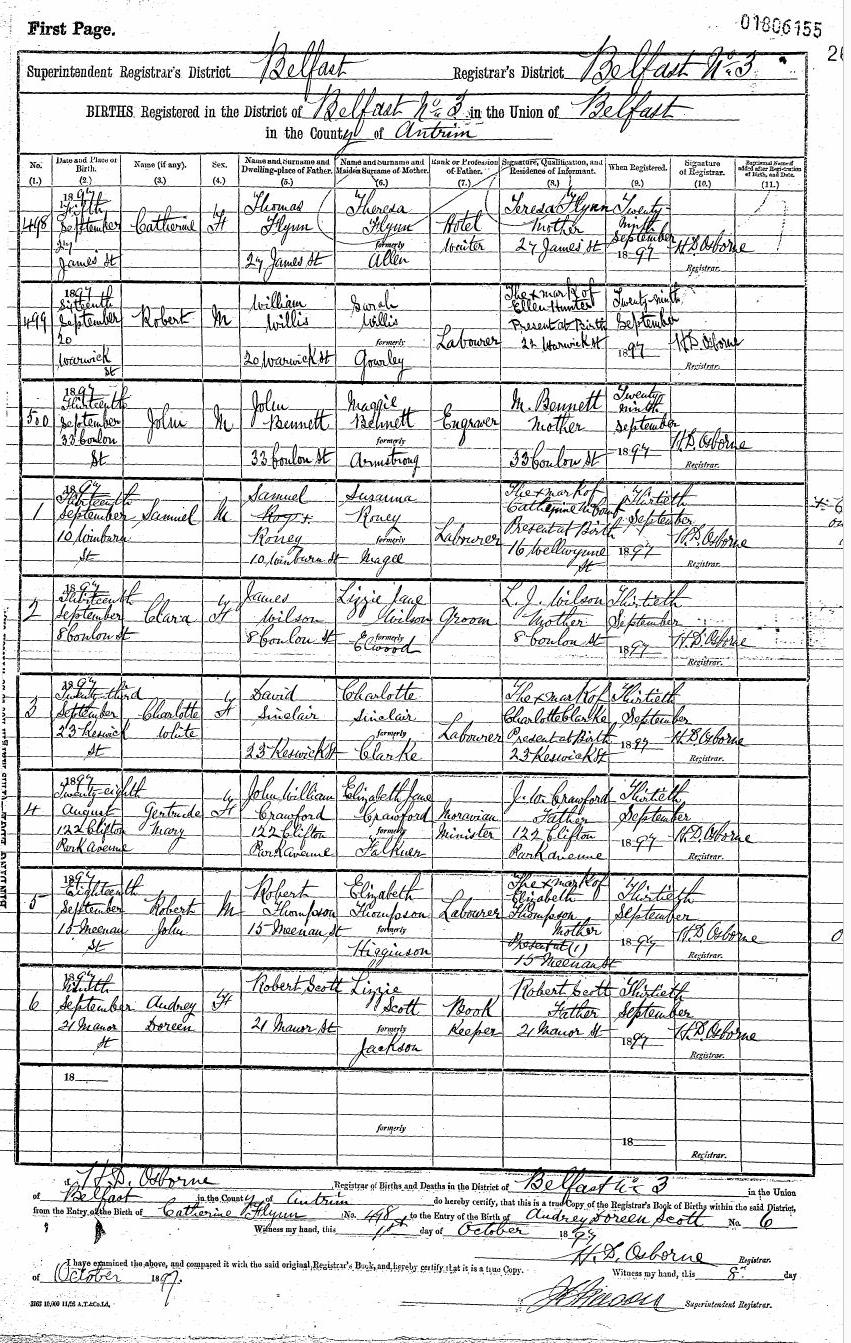 First Page.
01806155
Superintendent Registrar's District Belfast Registrar's District Belfast No. 3
BIRTHS Registered in the District of Belfast No. 3 in the Union of Belfast
in the County of Antrim
No. Date and Place of Birth. Name (if any). Sex. Name and Surname and Dwelling-place of Father. Name and Surname and Maiden Surname of Mother. Rank or Profession of Father. Signature, Qualification, and Residence of Informant. When Registered. Signature of Registrar.
(1.) (2.) (3.) (4.) (5.) (6.) (7.) (8.) (9.) (10.) (11.)
498 1897 Fifth September 27 James St Catherine F Thomas Flynn 27 James St Theresa Flynn formerly Allen Hotel Waiter Teresa Flynn Mother 27 James St Twenty ninth September 1897 H.D. Osborne Registrar.
499 1897 Sixteenth September 20 Warwick St Robert M William Willis 20 Warwick St Sarah Willis formerly Gourley Labourer The x mark of Ellen Hunter Present at Birth 22 Warwick St Twenty-ninth September 1897 H.D. Osborne Registrar.
500 1897 Thirteenth September 33 Conlon St John M John Bennett 33 Conlon St Maggie Bennett formerly Armstrong Engraver M. Bennett Mother 33 Conlon St Twenty ninth September 1897 H.D. Osborne Registrar.
1 1897 Thirteenth September 10 Winburn St Samuel M Samuel Roney 10 Winburn St Susanna Roney formerly Magee Labourer The x mark of Catherine Present at Birth 16 Wellwynne St Thirtieth September 1897 H.D. Osborne Registrar.
2 1897 Thirteenth September 8 Conlon St Clara F James Wilson 8 Conlon St Lizzie Jane Wilson formerly Elwood Groom L. J. Wilson Mother 8 Conlon St Thirtieth September 1897 H.D. Osborne Registrar.
3 1897 Twenty-third September 23 Keswick St Charlotte White F David Sinclair 23 Keswick St Charlotte Sinclair formerly Clarke Labourer The x mark of Charlotte Clarke Present at Birth 23 Keswick St Thirtieth September 1897 H.D. Osborne Registrar.
4 1897 Twenty-eighth August 122 Clifton Park Avenue Gertrude Mary F John William Crawford 122 Clifton Park Avenue Elizabeth Jane Crawford formerly Falkner Moravian Minister J. W. Crawford Father 122 Clifton Park Avenue Thirtieth September 1897 H.D. Osborne Registrar.
5 1897 Eighteenth September 15 Meenan St Robert John M Robert Thompson 15 Meenan St Elizabeth Thompson formerly Higginson Labourer The x mark of Elizabeth Thompson Mother Present (1) 15 Meenan St Thirtieth September 1897 H.D. Osborne Registrar.
6 1897 Ninth September 21 Manor St Audrey Doreen F Robert Scott 21 Manor St Lizzie Scott formerly Jackson Book Keeper Robert Scott Father 21 Manor St Thirtieth September 1897 H.D. Osborne Registrar.
18 formerly 18 Registrar.
I H.D. Osborne Registrar of Births and Deaths in the District of Belfast No. 3 in the Union
of Belfast in the County of Antrim do hereby certify, that this is a true Copy of the Registrar's Book of Births within the said District,
from the Entry of the Birth of Catherine Flynn No. 498 to the Entry of the Birth of Audrey Doreen Scott No. 6
Witness my hand, this 1st day of October 1897
H.D. Osborne Registrar.
I have examined the above, and compared it with the said original Registrar's Book, and hereby certify that it is a true Copy. Witness my hand, this 8 day
of October 1897.
Superintendent Registrar.